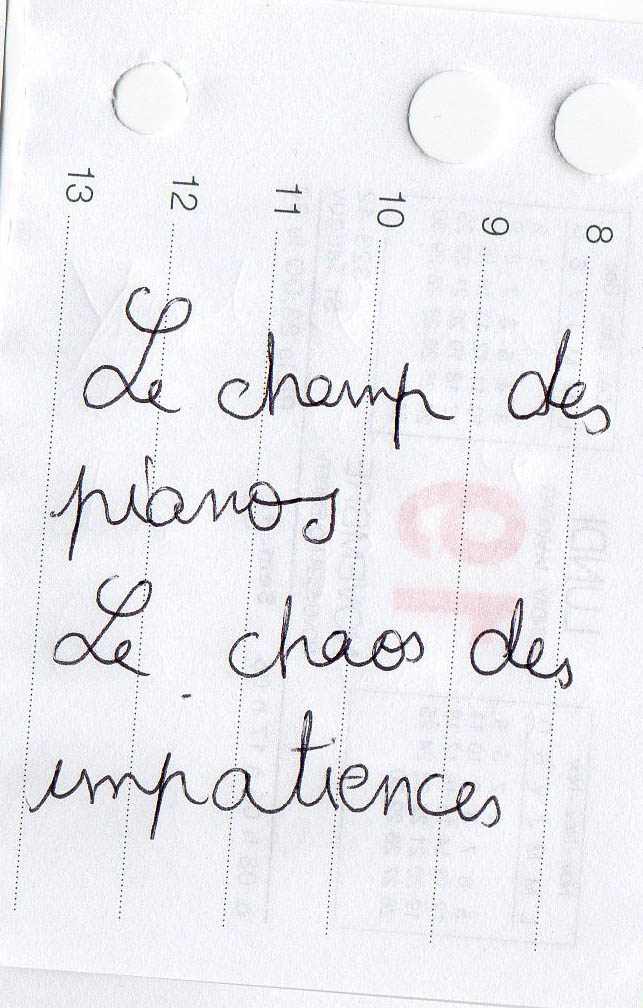 13
12
11
10
9
8
Le champ des
pianos
Le chaos des
impatiences
LUNDI
NOVEMBRE